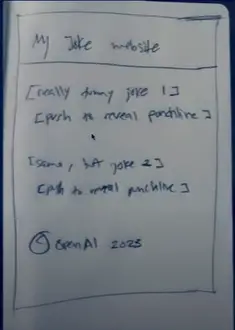 My Joke Website
[really funny joke 1]
[push to reveal punchline]
[same, but joke 2]
[push to reveal punchline]
© OpenAI 2023